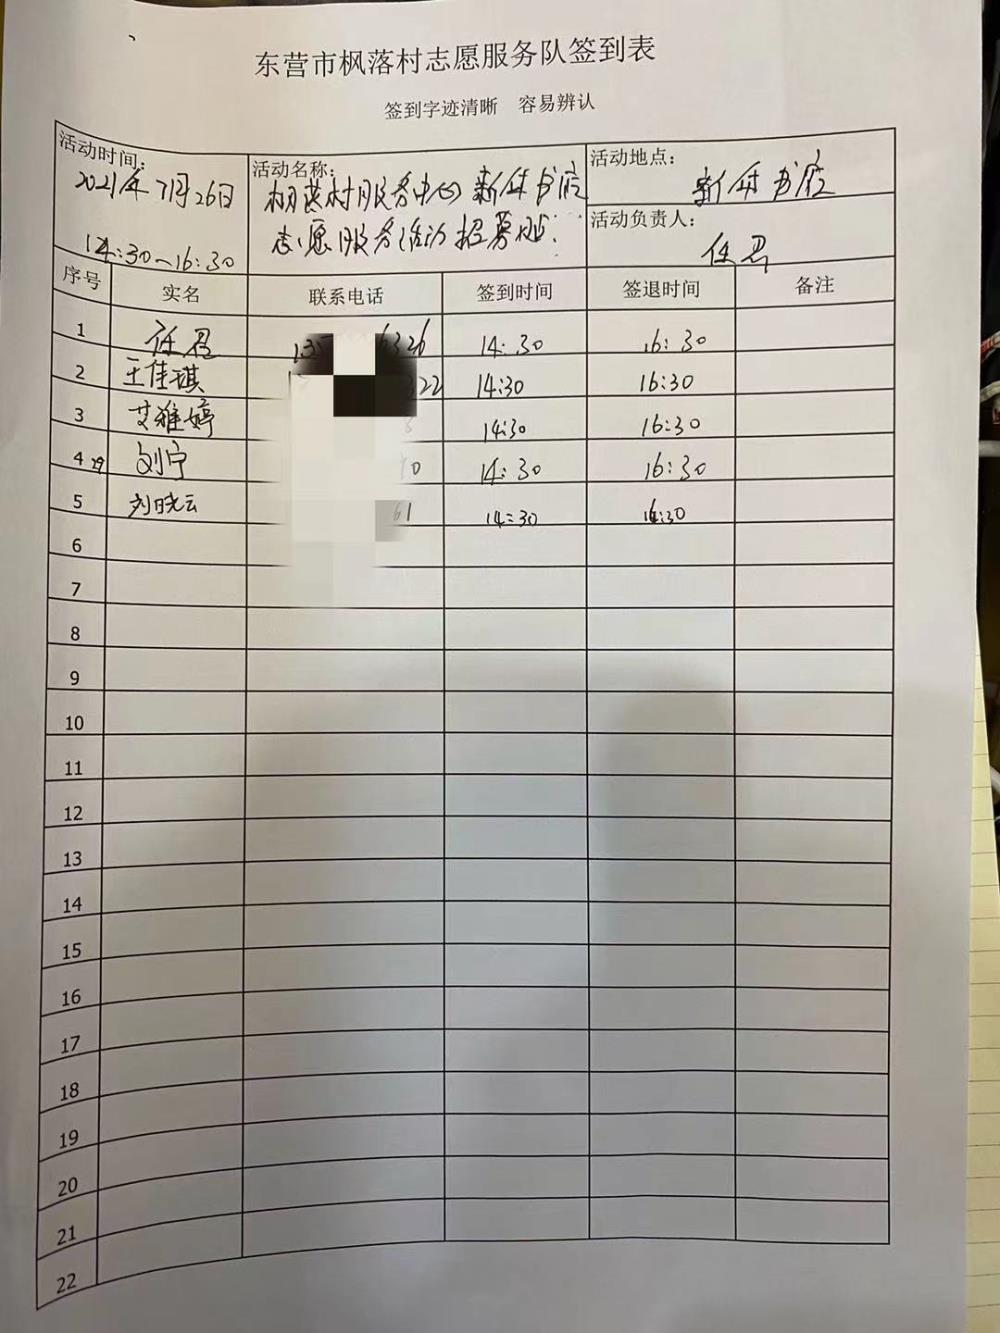 东营市枫落村志愿服务队签到表
签到字迹清晰 容易辨认
活动时间:
2021年7月26日
14:30~16:30
活动名称:
枫落村服务中心新华书店
志愿服务活动招募
活动地点:
新华书店
活动负责人:
任君
序号 实名 联系电话 签到时间 签退时间 备注
1 任君 135 6326 14:30 16:30
2 王佳琪 1 322 14:30 16:30
3 艾雅婷 8 14:30 16:30
4 刘宁 90 14:30 16:30
5 刘晓云 61 14:30 16:30
6
7
8
9
10
11
12
13
14
15
16
17
18
19
20
21
22